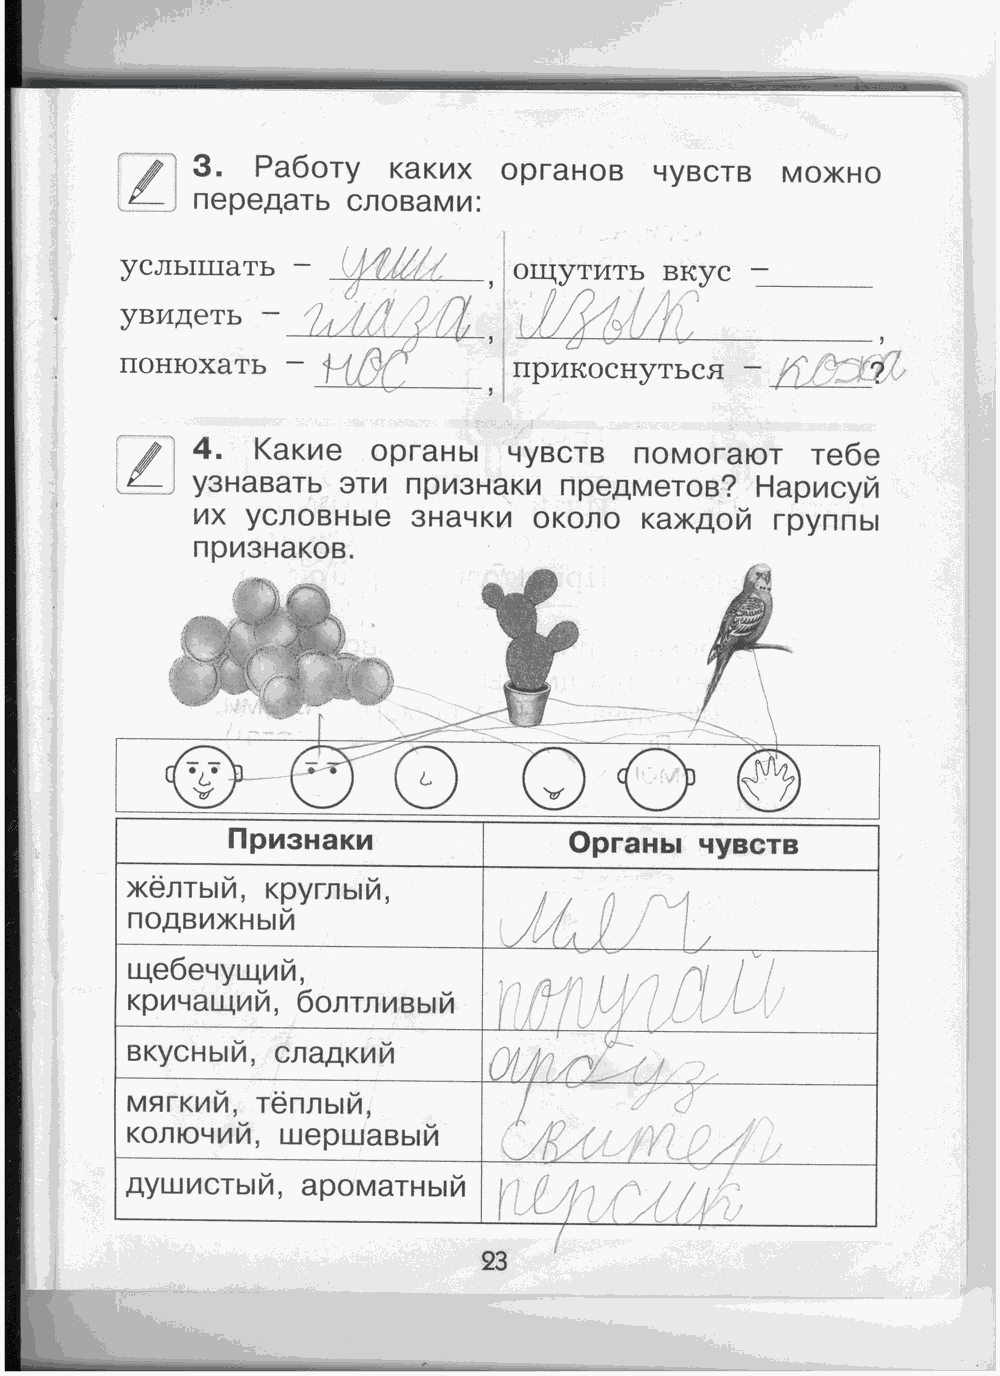 3. Работу каких органов чувств можно
передать словами:
услышать – уши,
увидеть – глаза,
понюхать – нос,
ощутить вкус –
язык,
прикоснуться – кожа?
4. Какие органы чувств помогают тебе
узнавать эти признаки предметов? Нарисуй
их условные значки около каждой группы
признаков.
Признаки Органы чувств
жёлтый, круглый,
подвижный
мяч
щебечущий,
кричащий, болтливый
попугай
вкусный, сладкий
арбуз
мягкий, тёплый,
колючий, шершавый
свитер
душистый, ароматный
персик
23